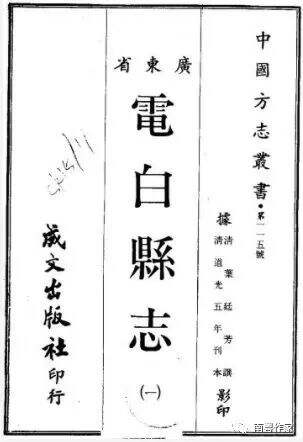 中國方志叢書·第一一五號
據清葉廷芳撰
清道光五年刊本影印
廣東省
電白縣志
(一)
成文出版社印行
南粤作家